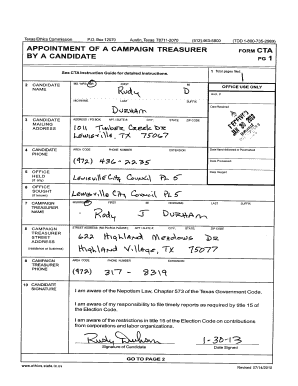 Texas Ethics Commission P.O. Box 12070 Austin, Texas 78711-2070 (512) 463-5800 (TDD 1-800-735-2989)
APPOINTMENT OF A CAMPAIGN TREASURER
BY A CANDIDATE
FORM CTA
PG 1
See CTA Instruction Guide for detailed instructions.
1 Total pages filed:
2 CANDIDATE NAME
MS / MRS / MR FIRST MI
Rudy D
NICKNAME LAST SUFFIX
Durham
OFFICE USE ONLY
Date Received
3 CANDIDATE MAILING ADDRESS
ADDRESS / PO BOX; APT / SUITE #; CITY; STATE; ZIP CODE
1011 Timber Creek Dr
Lewisville, TX 75067
4 CANDIDATE PHONE
AREA CODE PHONE NUMBER EXTENSION
(972) 436-2235
Date Hand-delivered or Postmarked
Date Processed
5 OFFICE HELD (if any)
Lewisville City Council PL 5
Date Imaged
6 OFFICE SOUGHT (if known)
Lewisville City Council PL 5
7 CAMPAIGN TREASURER NAME
MS / MRS / MR FIRST MI NICKNAME LAST SUFFIX
Rudy J Durham
8 CAMPAIGN TREASURER STREET ADDRESS
(residence or business)
STREET ADDRESS (NO PO BOX PLEASE); APT / SUITE #; CITY; STATE; ZIP CODE
622 Highland Meadows Dr
Highland Village, TX 75077
9 CAMPAIGN TREASURER PHONE
AREA CODE PHONE NUMBER EXTENSION
(972) 317-8319
10 CANDIDATE SIGNATURE
I am aware of the Nepotism Law, Chapter 573 of the Texas Government Code.
I am aware of my responsibility to file timely reports as required by title 15 of
the Election Code.
I am aware of the restrictions in title 15 of the Election Code on contributions
from corporations and labor organizations.
Rudy Durham 1-30-13
Signature of Candidate Date Signed
GO TO PAGE 2
www.ethics.state.tx.us Revised 07/14/2010